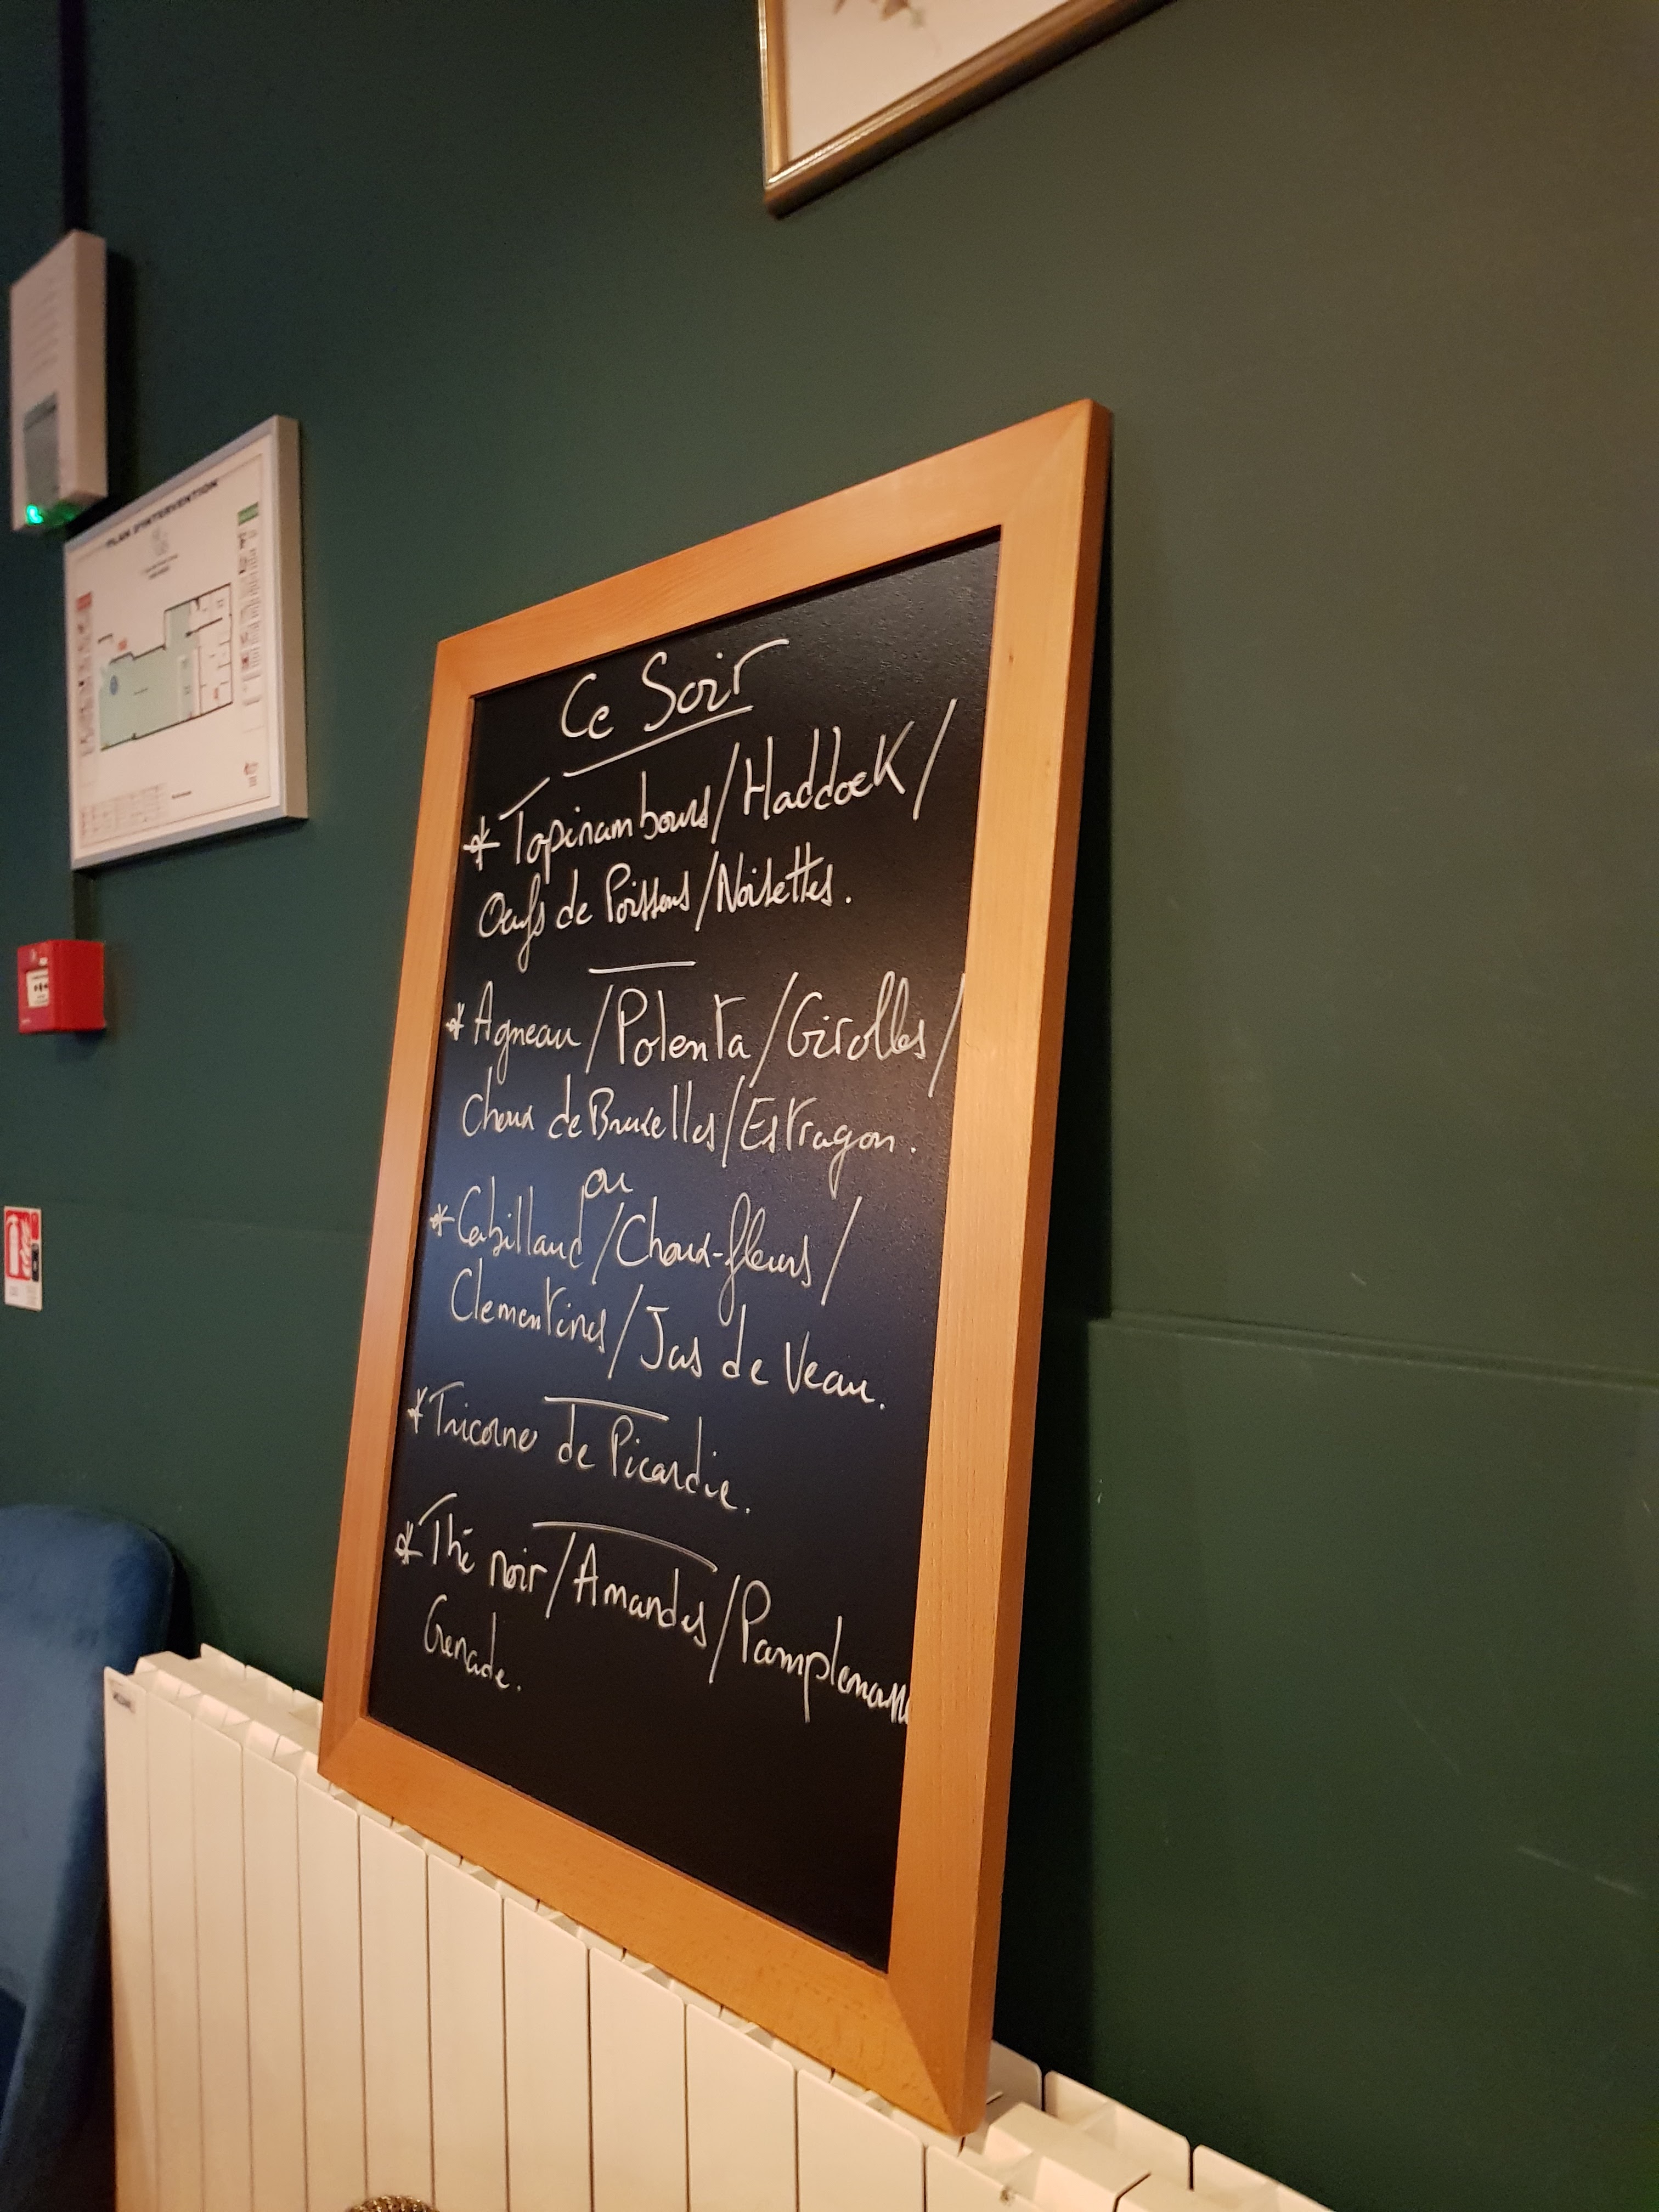 PLAN D'INTERVENTION
Ce Soir
* Topinambours / Haddock /
Oeufs de Poissons / Noisettes.
* Agneau / Polenta / Girolles /
Choux de Bruxelles / Estragon.
ou
* Cabillaud / Choux-fleurs /
Clementines / Jus de Veau.
* Tricorne de Picardie.
* Thé noir / Amandes / Pamplemousse
Grenade.